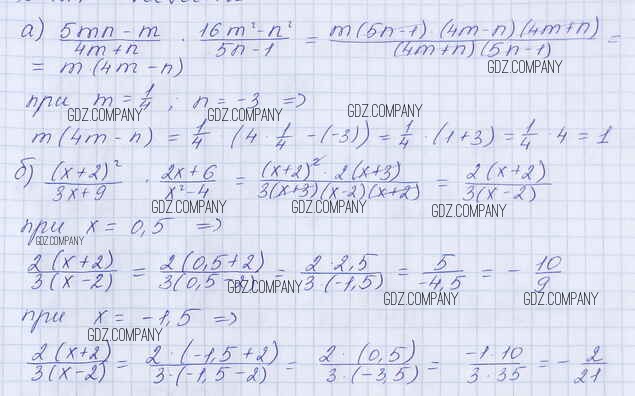 а) (5mn - m)/(4m + n) · (16m² - n²)/(5n - 1) = (m(5n - 1) (4m - n)(4m + n))/((4m + n)(5n - 1)) =
= m(4m - n)
GDZ.COMPANY
при m = 1/4 ; n = -3 =>
GDZ.COMPANY GDZ.COMPANY GDZ.COMPANY
m(4m - n) = 1/4 (4 · 1/4 - (-3)) = 1/4 · (1 + 3) = 1/4 · 4 = 1
б) (x + 2)²/(3x + 9) · (2x + 6)/(x² - 4) = ((x + 2)² · 2(x + 3))/(3(x + 3)(x - 2)(x + 2)) = 2(x + 2)/(3(x - 2))
GDZ.COMPANY GDZ.COMPANY GDZ.COMPANY
при x = 0,5 =>
GDZ.COMPANY
2(x + 2)/(3(x - 2)) = 2(0,5 + 2)/(3(0,5 - 2)) = (2 · 2,5)/(3 · (-1,5)) = 5/(-4,5) = - 10/9
GDZ.COMPANY GDZ.COMPANY GDZ.COMPANY
при x = -1,5 =>
GDZ.COMPANY
2(x + 2)/(3(x - 2)) = (2 · (-1,5 + 2))/(3 · (-1,5 - 2)) = (2 · (0,5))/(3 · (-3,5)) = (-1 · 10)/(3 · 35) = - 2/21